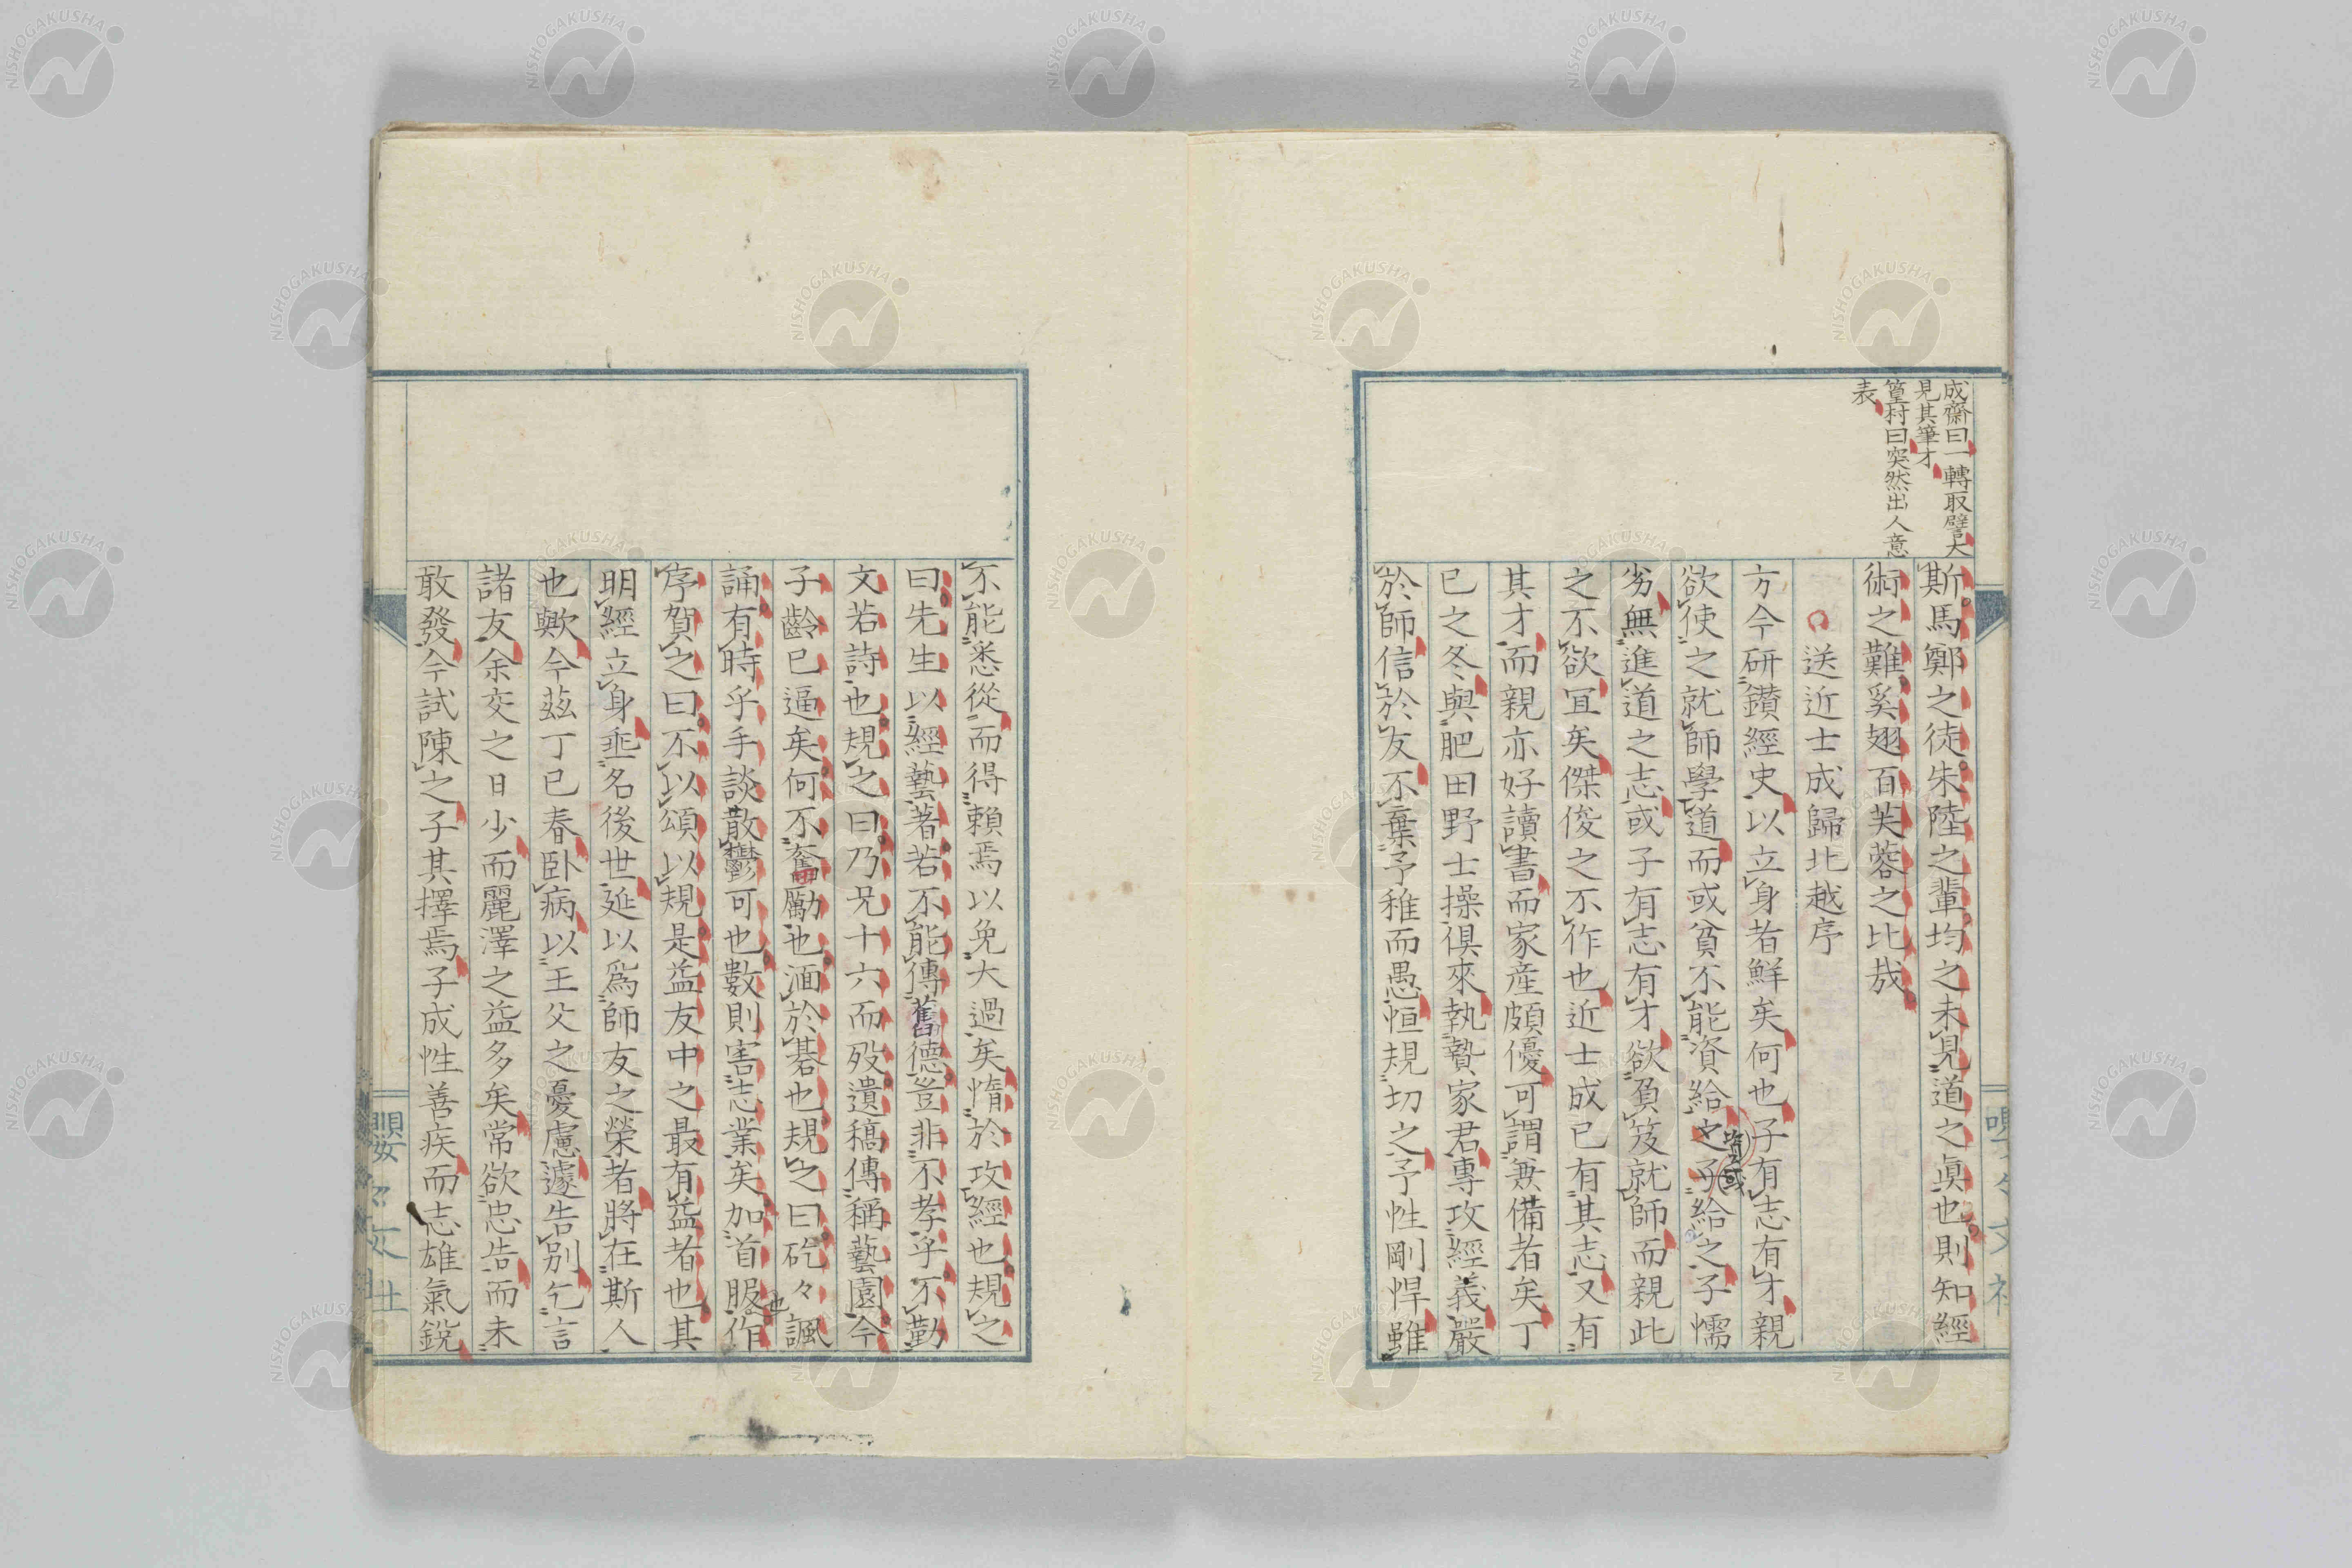 成齋曰一轉取譬大
見其筆才
篁村曰突然出人意
表
斯馬鄭之徒朱陸之輩均之未見道之眞也則知經
術之難奚翅百芙蓉之比哉
送近士成歸北越序
方今研鑚經史以立身者鮮矣何也子有志有才親
欲使之就師學道而或貧不能資給之子給之子懦
皆或
劣無進道之志或子有志有才欲負笈就師而親此
之不欲宜矣傑俊之不作也近士成已有其志又有
其才而親亦好讀書而家産頗優可謂兼備者矣丁
已之冬與肥田野士操俱來執贄家君專攻經義嚴
於師信於友不棄予稚而愚恒規切之予性剛悍雖
不能悉從而得賴焉以免大過矣惰於攻經也規之
曰先生以經藝著若不能傳舊德豈非不孝乎不勤
文若詩也規之曰乃兄十六而歿遺稿傳稱藝園今
子齡已逼矣何不奮勵也湎於碁也規之曰矻々諷
誦有時乎手談散鬱可也數則害志業矣加首服作
也
序賀之曰不以頌以規是益友中之最有益者也其
明經立身垂名後世延以爲師友之榮者將在斯人
也歟今茲丁已春臥病以王父之憂慮遽告別乞言
諸友余交之日少而麗澤之益多矣常欲忠告而未
敢發今試陳之子其擇焉子成性善疾而志雄氣銳
NISHOGAKUSHA